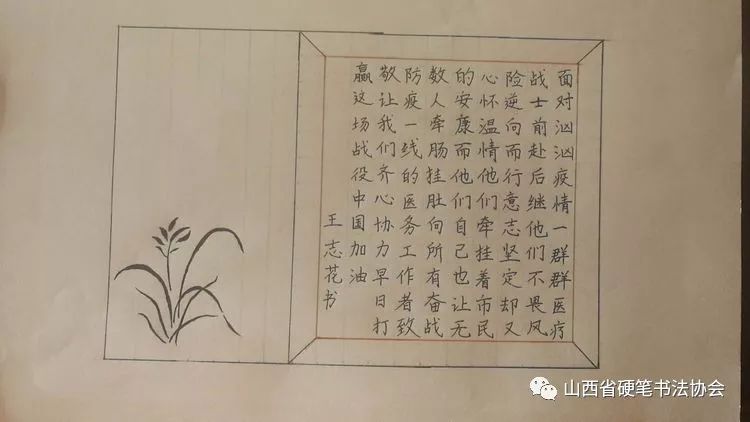 面对汹汹疫情一群群医疗
战士前赴后继他们不畏风
险逆向而行意志坚定却又
心怀温情他们牵挂着市民
的安康而他们自己也让无
数人牵肠挂肚向所有奋战
防疫一线的医务工作者致
敬让我们齐心协力早日打
赢这场战役中国加油
王志花书
山西省硬笔书法协会